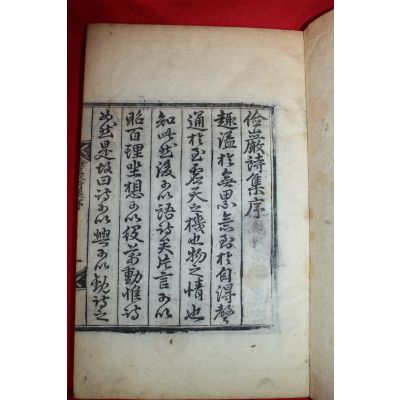 儉巖詩集序
趣溢於無思意到於自得聲
通於至虛天之機也物之情也
知此然後可以語詩矣片言可以
昭百理坐想可以役萬動惟詩
為然是故曰詩可以興可以觀詩之